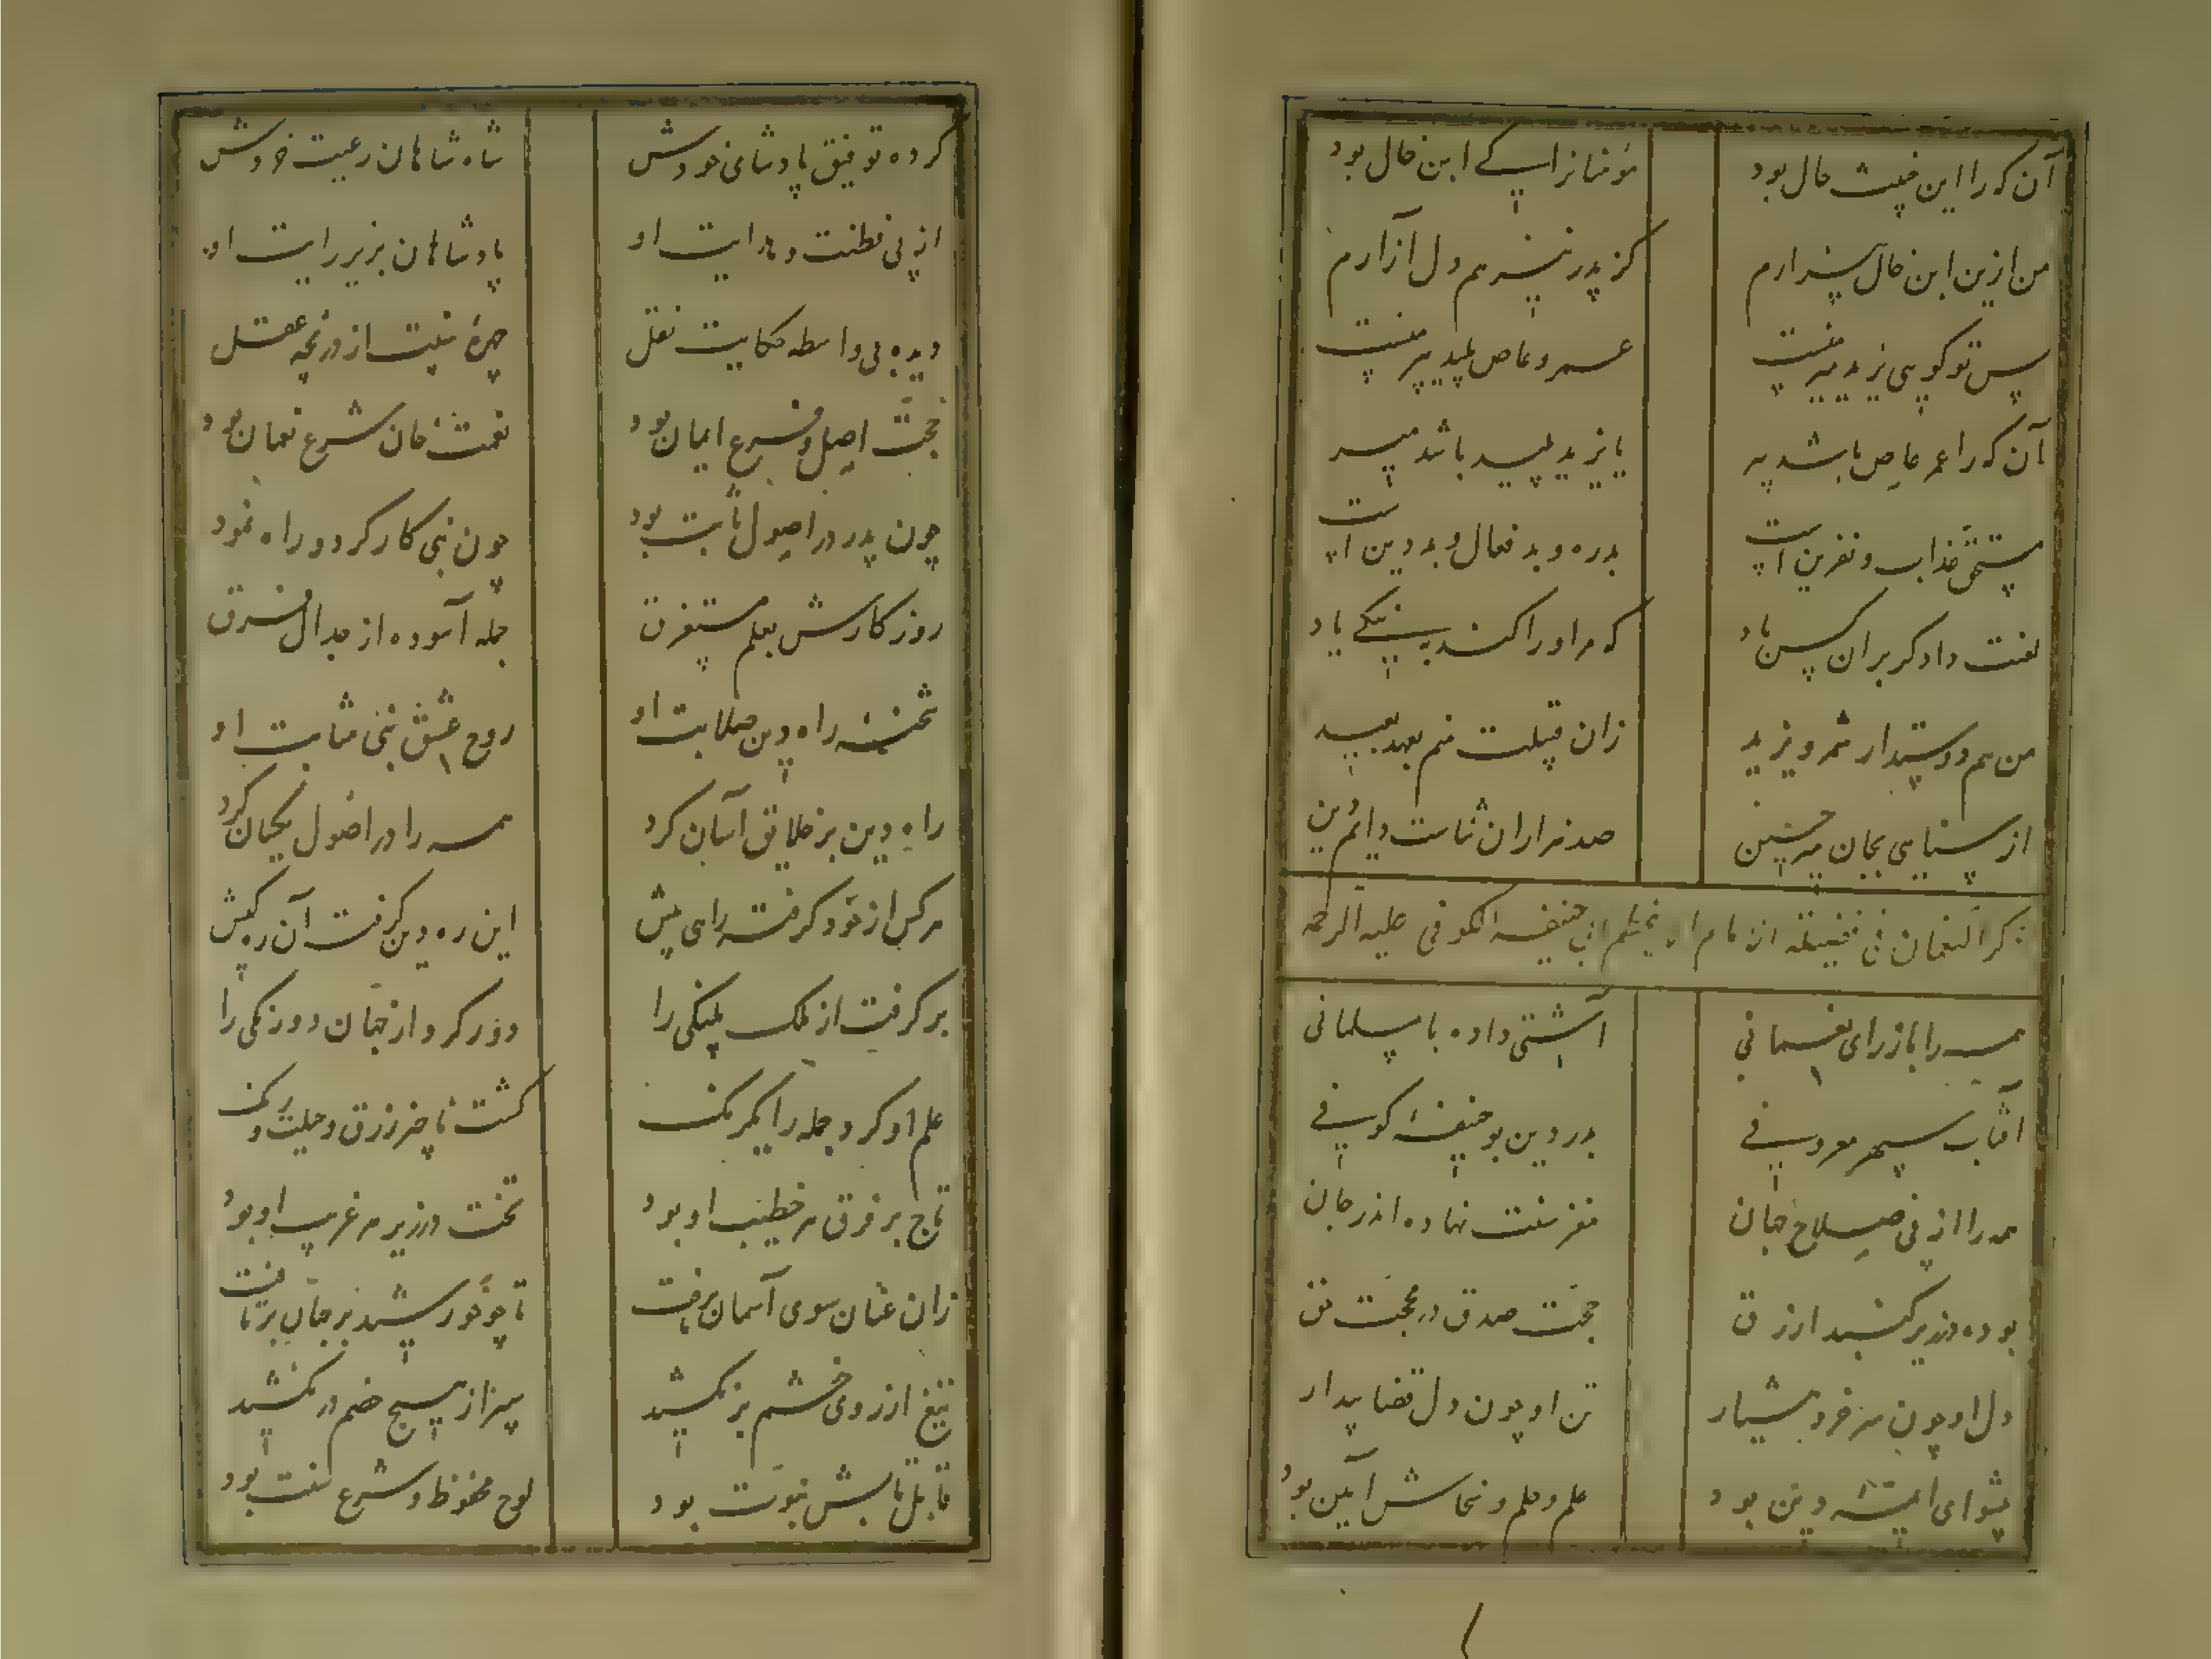 آن که را این خبیث خال بود مؤمنانرا کی این خال بود
من ازین ابن خال بیزارم کز پدر نیز هم دل آزارم
پس تو گویی یزید میر منست عمرو عاص پلید پیر منست
آن که را عمرعاص باشد پیر یا یزید پلید باشد میر
مستحق عذاب و نفرین است بدره و بد فعال و بد دین است
لعنت دادگر بران کس باد که مر او را کند به نیکی یاد
من نیم دوستدار شمر و یزید زان قبیلت منم بعهد بعید
از سنایی بجان میر حسین صد هزاران ثناست دایم دین
ذکر النعمان فی فضیلة الامام ابی حنیفه الکوفی علیه الرحمه
همه را باز رای نعمانی آشتی داده با مسلمانی
آفتاب سپهر معروفی بدر دین بو حنیفهٔ کوفی
همه را از پی صلاح جهان مغز سنت نهاده اندر جان
بوده در زیر گنبد ازرق حجت صدق در محجت حق
دل او چون سر خرد هشیار تن او چون دل قضا بیدار
پیشوای ائمهٔ دین بود علم و حلم و سخاش آیین بود
کرده توفیق پادشای خودش شاه شاهان رعیت خردش
از پی فطنت و هدایت او پادشاهان بزیر رایت او
دیده بی واسطه حکایت نقل چهرهٔ نیت از دریچه عقل
حجت اصل و فرع ایمان بود نعمت خان شرع نعمان بود
چون پدر در اصول ثابت بود چون نبی کار کرد و راه نمود
روزگارش بعلم مستغرق جمله آسوده از جدال فرق
شحنهٔ راه دین صلابت او روح عشق نبی مثابت او
راه دین بر خلایق آسان کرد همه را در اصول یکسان کرد
هرکس از خود گرفت راهی پیش این ره دین گرفت آن ره کیش
بر گرفت از ملک پلنگی را دور کرد از جهان دورنگی را
علم او کرد جمله را یکرنگ گشت ناچیز زرق و حیلت و رنگ
تاج بر فرق هر خطیب او بود تخت در زیر هر غریب او بود
زان عنان سوی آسمان برتافت تا چو خورشید بر جهان برتافت
تیغ از روی خشم برنکشید سر از هیچ خصم در نکشید
قابل تابش نبوت بود لوح محفوظ و شرع سنت بود